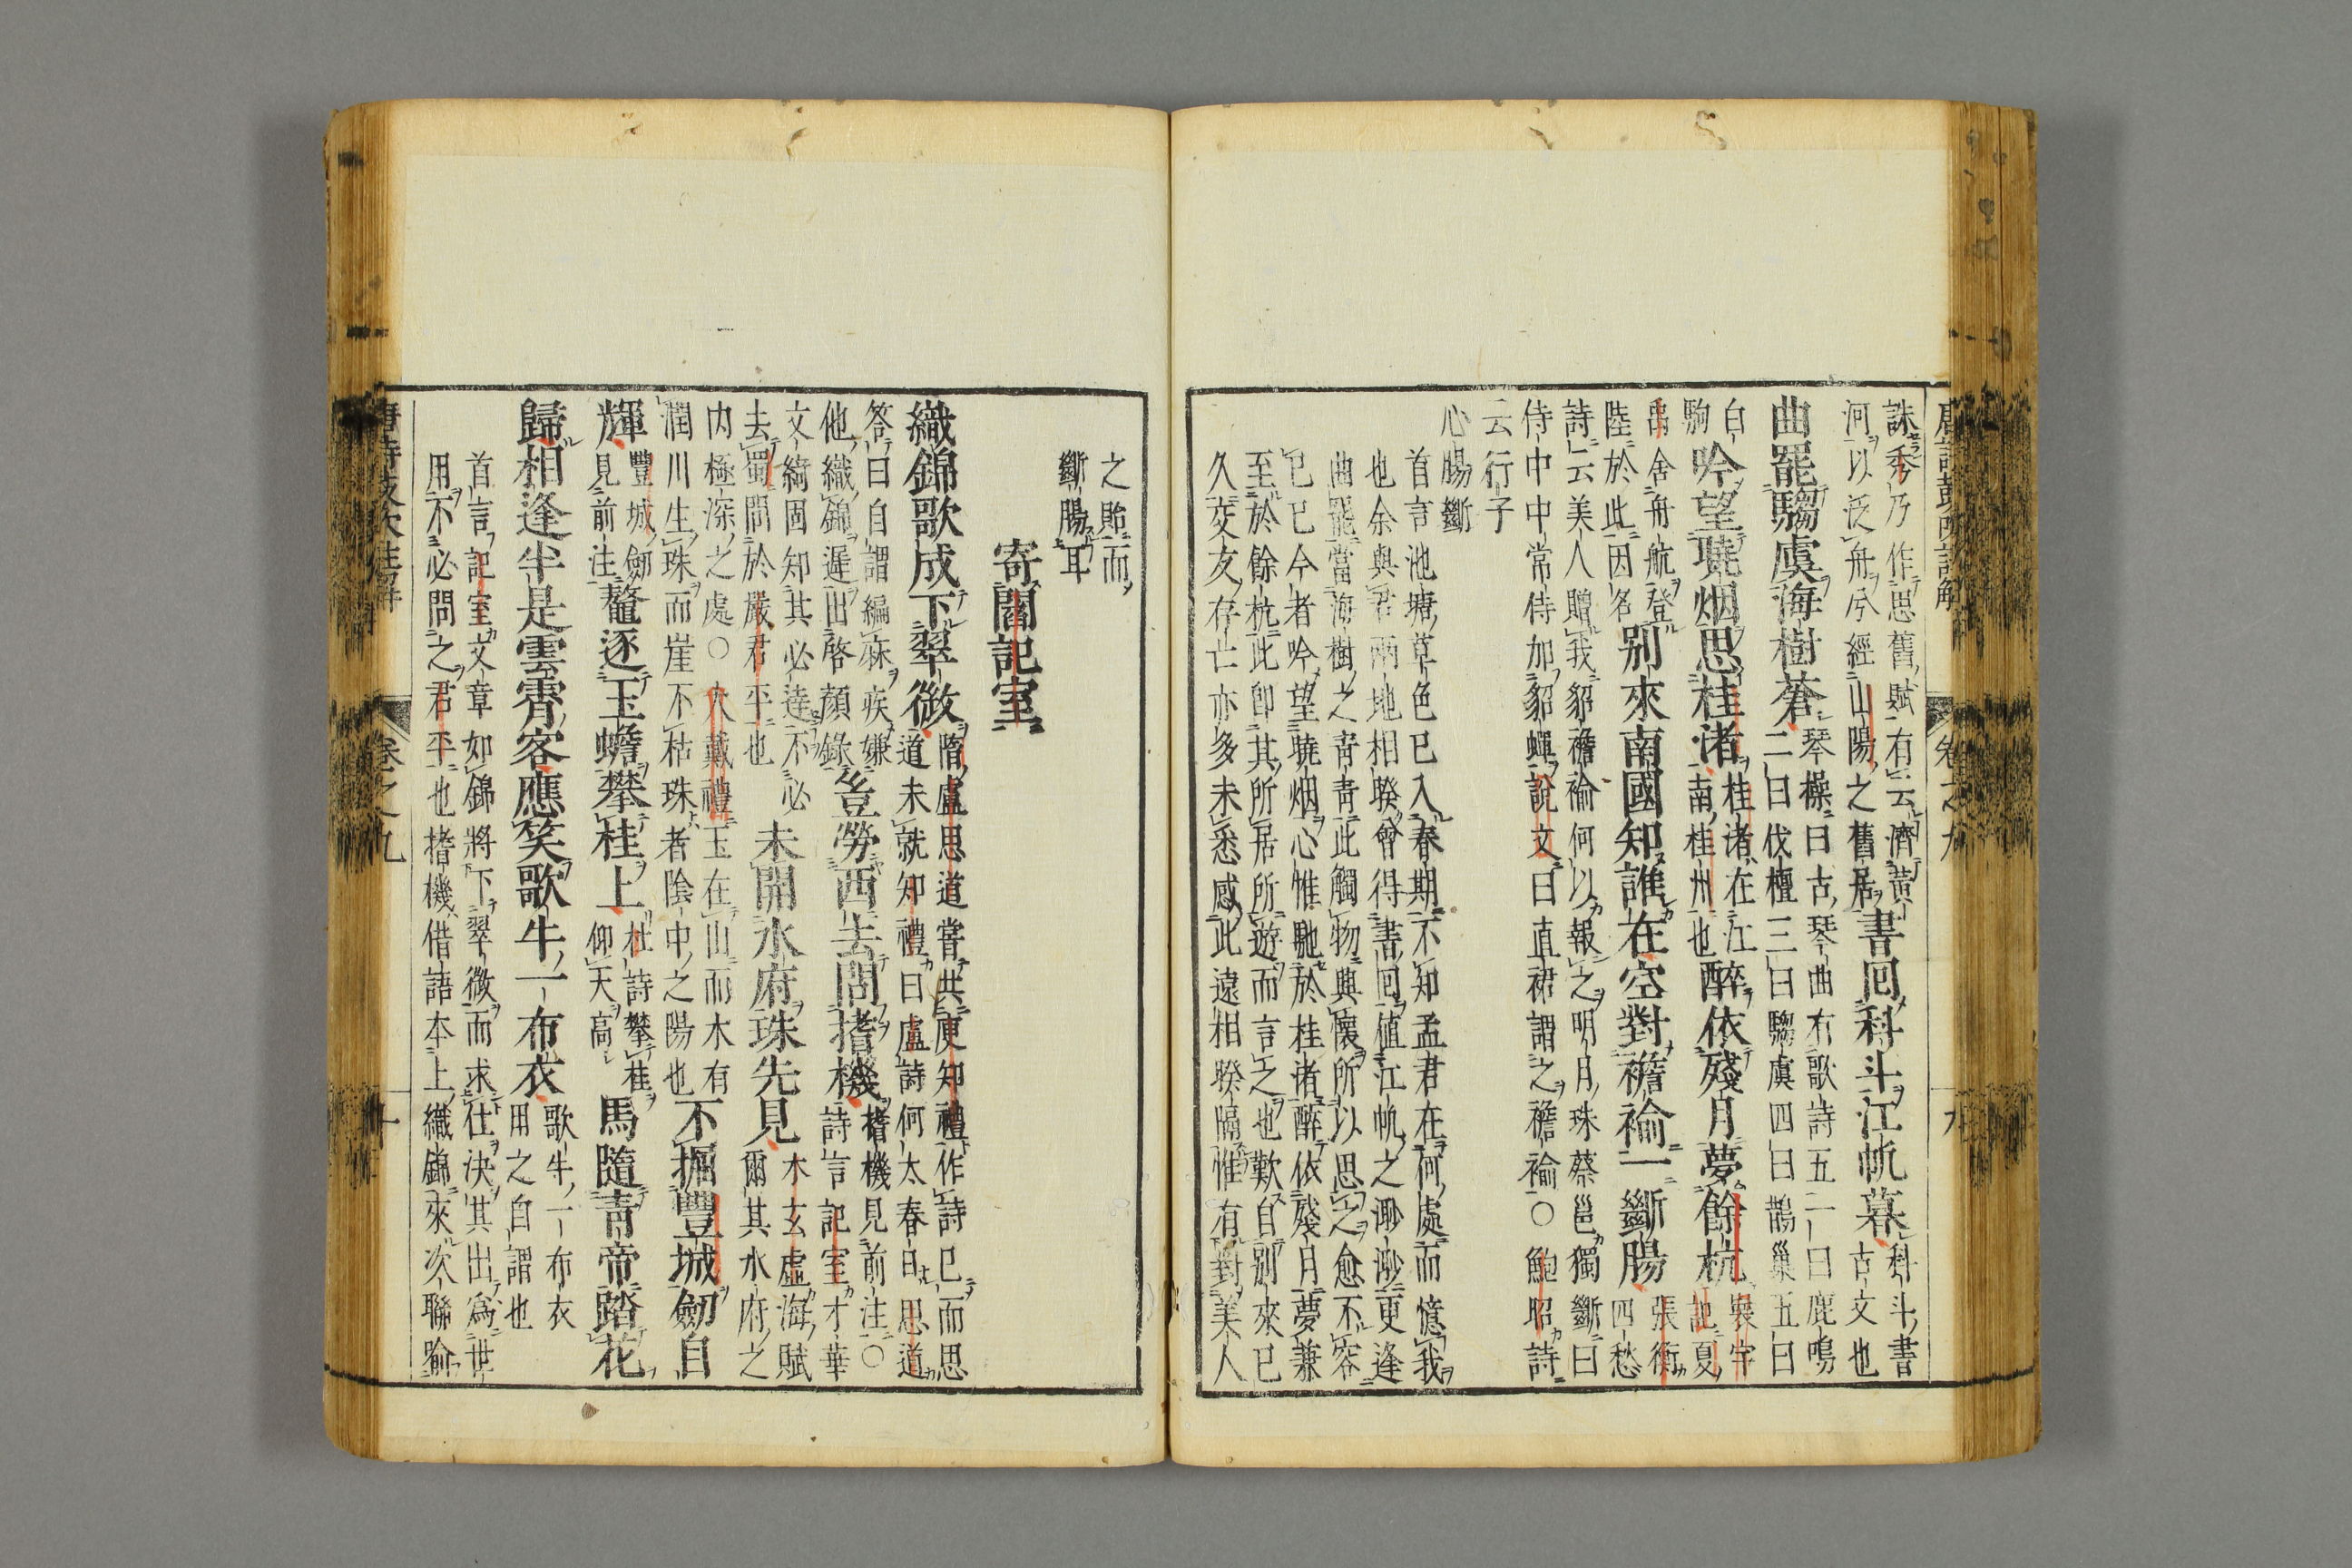 誅秀乃作思舊賦有云濟黄
河以泛舟兮經山陽之舊居書回科斗江帆暮科斗書
古文也
曲罷騶虞海樹蒼琴操曰古琴曲有歌詩五一曰鹿鳴
二曰伐檀三曰騶虞四曰鵲巢五曰
白
駒吟望曉烟思桂渚桂渚在江
南桂州也醉依殘月夢餘杭寰宇
記夏
禹舍舟航登
陸於此因名別來南國知誰在空對襜褕一斷腸張衡
四愁
詩云美人贈我貂襜褕何以報之明月珠蔡邕獨斷曰
侍中中常侍加貂蟬說文曰直裾謂之襜褕○鮑昭詩
云行子
心腸斷
首言池塘草色已入春期不知孟君在何處而憶我
也余與君兩地相暌曾得書回值江帆之渺渺更逢
曲罷當海樹之青青此觸物興懷所以思之愈不容
已已今者吟望曉烟心惟馳於桂渚醉依殘月夢兼
至於餘杭此卽其所居所遊而言之也歎自別來已
久交友存亡亦多未悉感此遠相暌隔惟有對美人
之貽而
斷腸耳
寄閻記室
織錦歌成下翠微隋盧思道嘗共庾知禮作詩已而思
道未就知禮曰盧詩何太春日思道
答曰自謂編麻疾嫌
他織錦遲出啓顏錄豈勞西去問揸機揸機見前注○
詩言記室才華
文綺固知其必達不必
去蜀問於嚴君平也未開水府珠先見木玄虛海賦
爾其水府之
内極深之處○大戴禮玉在山而木有
潤川生珠而崖不枯珠者陰中之陽也不掘豐城劒自
輝豐城劒
見前注鼇逐玉蟾攀桂上杜詩攀桂
仰天高馬隨青帝踏花
歸相逢半是雲霄客應笑歌牛一布衣歌牛一布衣
用之自謂也
首言記室文章如錦將下翠微而求仕決其出爲世
用不必問之君平也揸機借語本上織錦來次聯喻
卷之九